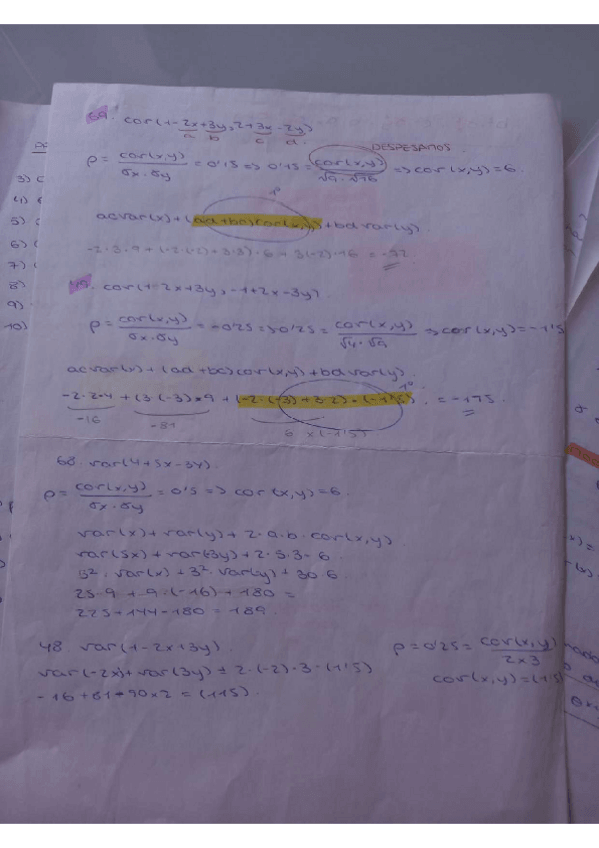 69. cov(1-2x+3y, 2+3x-2y)
a b c d.
DESPEJAMOS.
ρ = cov(x,y) / σx·σy = 0'5 => 0'5 = cov(x,y) / √9·√16 => cov(x,y) = 6.
1º
acvar(x) + (ad+bc)cov(x,y) + bdvar(y)
-2·3·9 + (-2·(-2)+3·3)·6 + 3(-2)·16 = -72
49. cov(1-2x+3y, -1+2x-3y)
ρ = cov(x,y) / σx·σy = -0'25 => 0'25 = cov(x,y) / √4·√9 => cov(x,y) = -1'5
acvar(x) + (ad+bc)cov(x,y) + bdvar(y).
-2·2·4 + (3·(-3)·9 + (-2·(-3)+3·2)·(-1'5) = -175
1º
-16 -81 6 x(-1'5)
68. var(4+5x-3y).
ρ = cov(x,y) / σx·σy = 0'5 => cov(x,y) = 6.
var(x) + var(y) + 2·a·b·cov(x,y)
var(5x) + var(3y) + 2·5·3·6
5²·var(x) + 3²·var(y) + 30·6
25·9 + 9·(-16) + 180 =
225 + 144 - 180 = 189.
48. var(1-2x+3y).
ρ = 0'25 = cov(x,y) / 2x3
var(-2x) + var(3y) + 2·(-2)·3·(1'5)
cov(x,y) = (1'5)
-16 + 81 + 90x2 = (115).
3)
4)
5)
6)
7)
8)
9)
10)